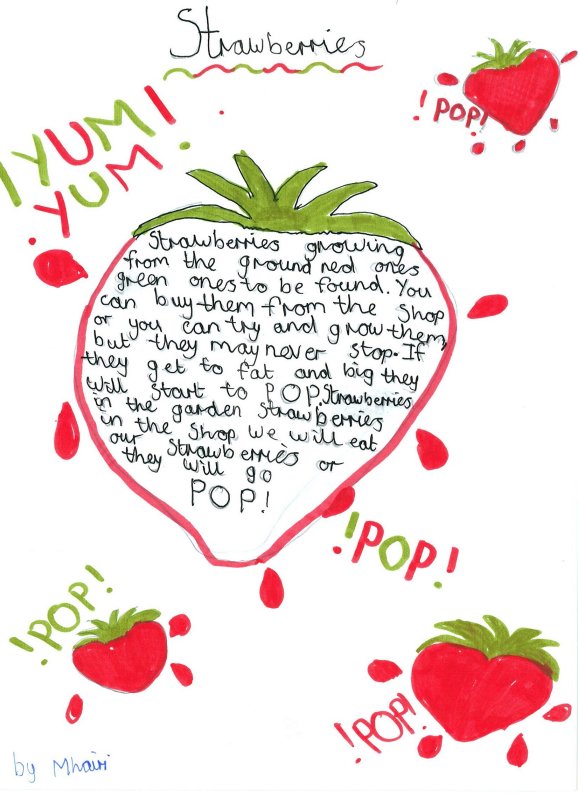 Strawberries
!POP!
!YUM!
YUM
Strawberries growing
from the ground red ones
green ones to be found. You
can buy them from the Shop
or you can try and grow them
but they may never stop. If
they get to fat and big they
will start to POP. Strawberries
in the garden strawberries
in the shop we will eat
our strawberries or
they will go
POP!
!POP!
!POP!
!POP!
by Mhairi